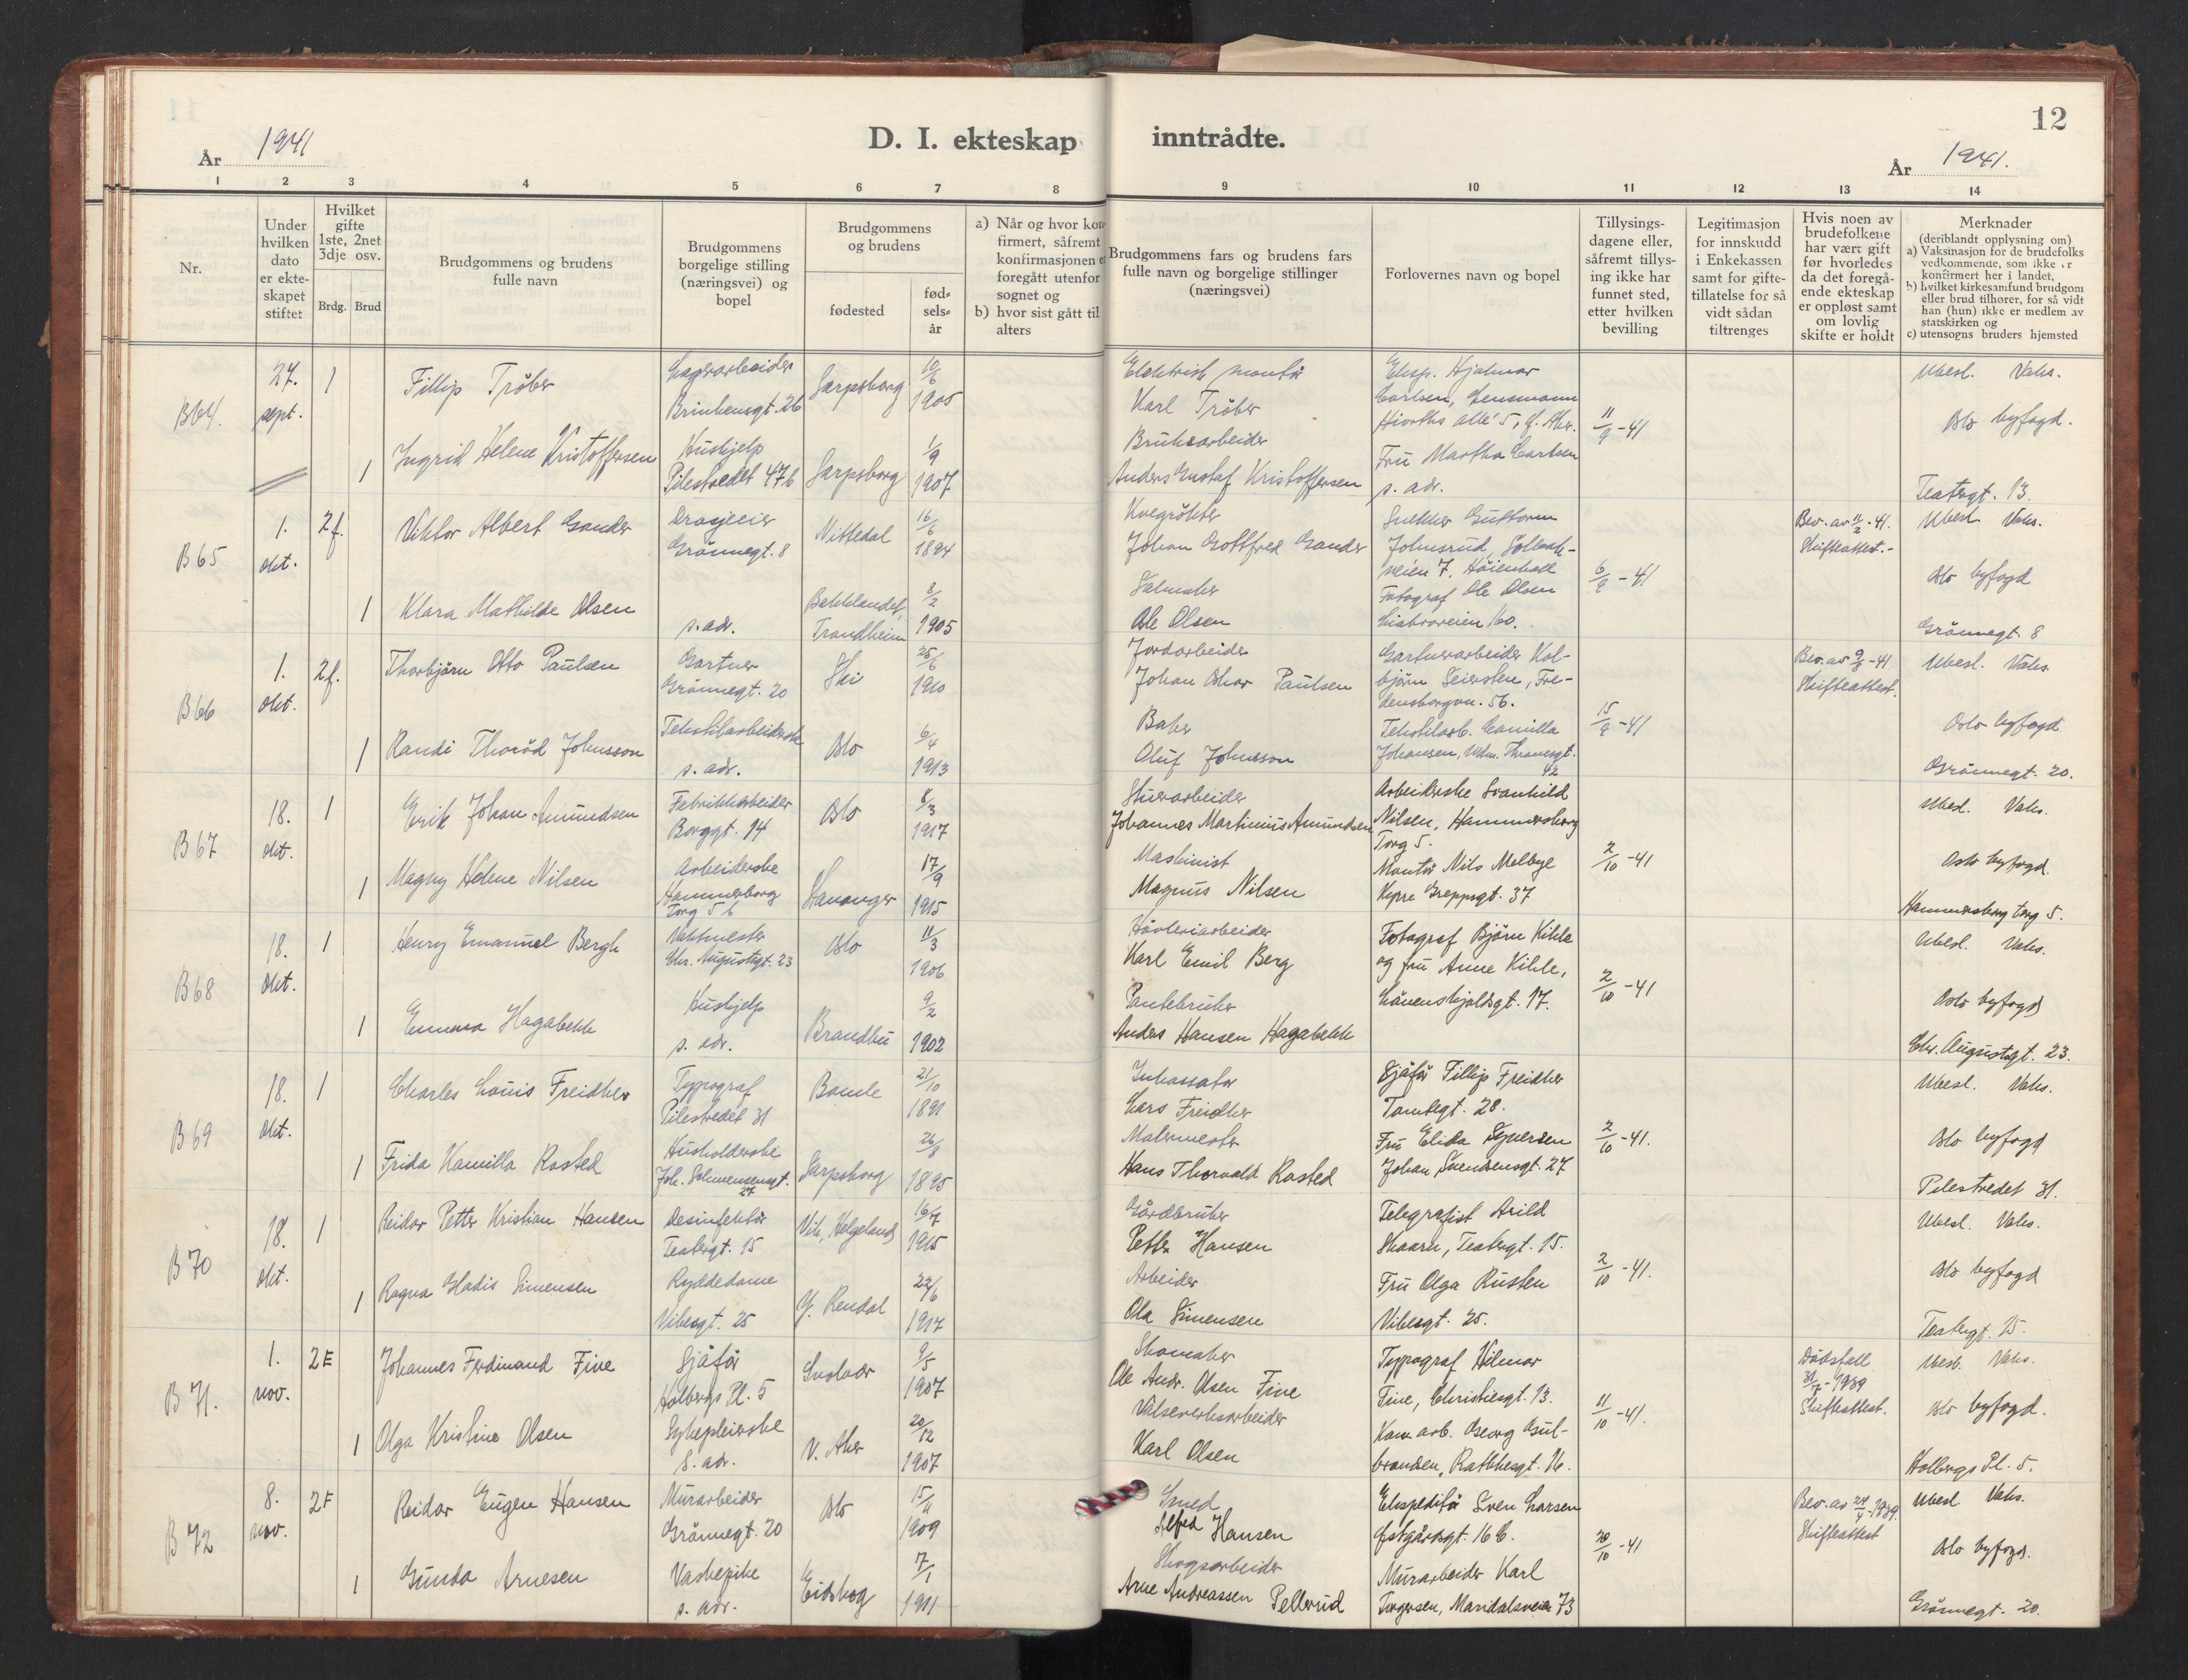 12
År 1941
D. I. ekteskap inntrådte.
År 1941.
1 2 3 4 5 6 7 8 9 10 11 12 13 14
Nr.
Under hvilken dato er ekteskapet stiftet
Hvilket gifte 1ste, 2net 3dje osv.
Brdg. Brud
Brudgommens og brudens fulle navn
Brudgommens borgelige stilling (næringsvei) og bopel
Brudgommens og brudens
fødested
fødselsår
a) Når og hvor konfirmert, såfremt konfirmasjonen er foregått utenfor sognet og
b) hvor sist gått til alters
Brudgommens fars og brudens fars fulle navn og borgelige stillinger (næringsvei)
Forlovernes navn og bopel
Tillysingsdagene eller, såfremt tillysing ikke har funnet sted, etter hvilken bevilling
Legitimasjon for innskudd i Enkekassen samt for giftetillatelse for så vidt sådan tiltrenges
Hvis noen av brudefolkene har vært gift før hvorledes da det foregående ekteskap er oppløst samt om lovlig skifte er holdt
Merknader
(deriblandt opplysning om)
a) Vaksinasjon for de brudefolks vedkommende, som ikke er konfirmert her i landet,
b) hvilket kirkesamfund brudgom eller brud tilhører, for så vidt han (hun) ikke er medlem av statskirken og
c) utensogns bruders hjemsted
B64. 27. sept. 1
Fillip Tröber
Lagerarbeider
Brinkensgt. 26
Sarpsborg
10/6 1905
Elektrisk montør
Karl Tröber
Eksp. Hjalmar
Carlsen, Lensmann
Hiorths allé 5, Ø. Aker.
11/9-41
Ubesl. Vaks.
Oslo byfogd.
1 Ingrid Helene Kristoffersen
Hushjelp
Pilestredet 47b
Sarpsborg
1/9 1907
Bruksarbeider
Anders Gustaf Kristoffersen
Fru Martha Carlsen
s. adr.
Teatergt. 13.
B65 1. okt. 2f.
Viktor Albert Gander
Drosjeeier
Grönnegt. 8
Nittedal
16/6 1894
Kvegrökter
Johan Gottfred Gander
Snekker Guttorm
Johnsrud, Solbakveien 7, Höienhall
6/9-41
Bev. av 11/2-41.
Skifteattest.-
Ubesl. Vaks.
Oslo byfogd
1 Klara Mathilde Olsen
s. adr.
Bakklandet, Trondheim
8/2 1905
Salmaker
Ole Olsen
Fotograf Ole Olsen
Liabroveien 60.
Grönnegt. 8
B66 1. okt. 2f.
Thorbjörn Otto Paulsen
Gartner
Grönnegt. 20
Ski
25/6 1910
Jordarbeider
Johan Oskar Paulsen
Gartnerarbeider Kolbjörn Seiersten, Fredensborgvn. 56.
15/9-41
Bev. av 9/8-41
Skifteattest.
Ubesl. Vaks.
Oslo byfogd
1 Randi Thoröd Johnsson
Tekstilarbeiderske
s. adr.
Oslo
6/4 1913
Baker
Oluf Johnsson
Tekstilarb. Camilla
Johansen, Wilm. Thranesgt. 42
Grönnegt. 20.
B67 18. okt. 1
Erik Johan Amundsen
Fabrikkarbeider
Borggt. 14
Oslo
8/3 1917
Stuerarbeider
Johannes Martinius Amundsen
Arbeiderske Svanhild
Nilsen, Hammersborg
Torg 5.
2/10-41
Ubesl. Vaks.
Oslo byfogd.
1 Magny Helene Nilsen
Arbeiderske
Hammersborg
Torg 5 b
Stavanger
17/9 1915
Maskinist
Magnus Nilsen
Montör Nils Melbye
Kyrre Greppsgt. 37
Hammersborg torg 5.
B68 18. okt. 1
Henry Emanuel Bergh
Vaktmester
Chr. Augustsgt. 23
Oslo
11/3 1906
Hövleriarbeider
Karl Emil Berg
Fotograf Björn Kihle
og fru Anne Kihle,
Lövenskjoldsgt. 17.
2/10-41
Ubesl. Vaks.
Oslo byfogd
1 Emma Hagabekk
Hushjelp
s. adr.
Brandbu
9/2 1902
Pantebruker
Anders Hansen Hagabekk
Chr. Augustsgt. 23.
B69 18. okt. 1
Charles Louis Freidker
Typograf
Pilestredet 31
Bamle
21/10 1891
Inkassator
Lars Freidker
Sjåför Fillip Freidker
Tomtegt. 28.
2/10-41.
Ubesl. Vaks.
Oslo byfogd
1 Frida Kamilla Rosted
Husholderske
Joh. Svendsensgt. 27
Sarpsborg
26/8 1895
Malermester
Hans Thorvald Rosted
Fru Elida Syversen
Johan Svendsensgt. 27
Pilestredet 31.
B70 18. okt. 1
Reidar Petter Kristian Hansen
Desinfektör
Teatergt. 15
Vik, Helgeland
16/7 1915
Gårdbruker
Petter Hansen
Telegrafist Arild
Skaarn, Teatergt. 15.
2/10-41.
Ubesl. Vaks.
Oslo byfogd
1 Ragna Gladis Simensen
Ryddedame
Vibesgt. 25
Y. Rendal
22/6 1917
Arbeider
Ola Simensen
Fru Olga Rusten
Vibesgt. 25.
Teatergt. 15.
B71. 1. nov. 2E
Johannes Ferdinand Fine
Sjåför
Holbergs Pl. 5
Svolvær
9/5 1907
Skomaker
Ole Andr. Olsen Fine
Typograf Hilmar
Fine, Christiesgt. 13.
11/10-41.
Dödsfall
1939
Skifteattest.
Ubesl. Vaks.
Oslo byfogd.
1 Olga Kristine Olsen
Sykepleierske
s. adr.
V. Aker
20/12 1907
Valseverksarbeider
Karl Olsen
Kom. arb. Georg Gulbrandsen, Rathkesgt. 16.
Holbergs Pl. 5.
B72 8. nov. 2F
Reidar Eugen Hansen
Murarbeider
Grönnegt. 20
Oslo
15/11 1909
Smed
Alfred Hansen
Ekspeditör Sven Larsen
Östgårdsgt. 16 b.
20/10-41
Bev. av 24/4-1939.
Skifteattest
Ubesl. Vaks.
Oslo byfogd.
1 Gunda Arnesen
Vaskepike
s. adr.
Eidskog
17/1 1911
Skogsarbeider
Arne Andreassen Pellerud
Murarbeider Karl
Torgersen, Maridalsveien 73
Grönnegt. 20.